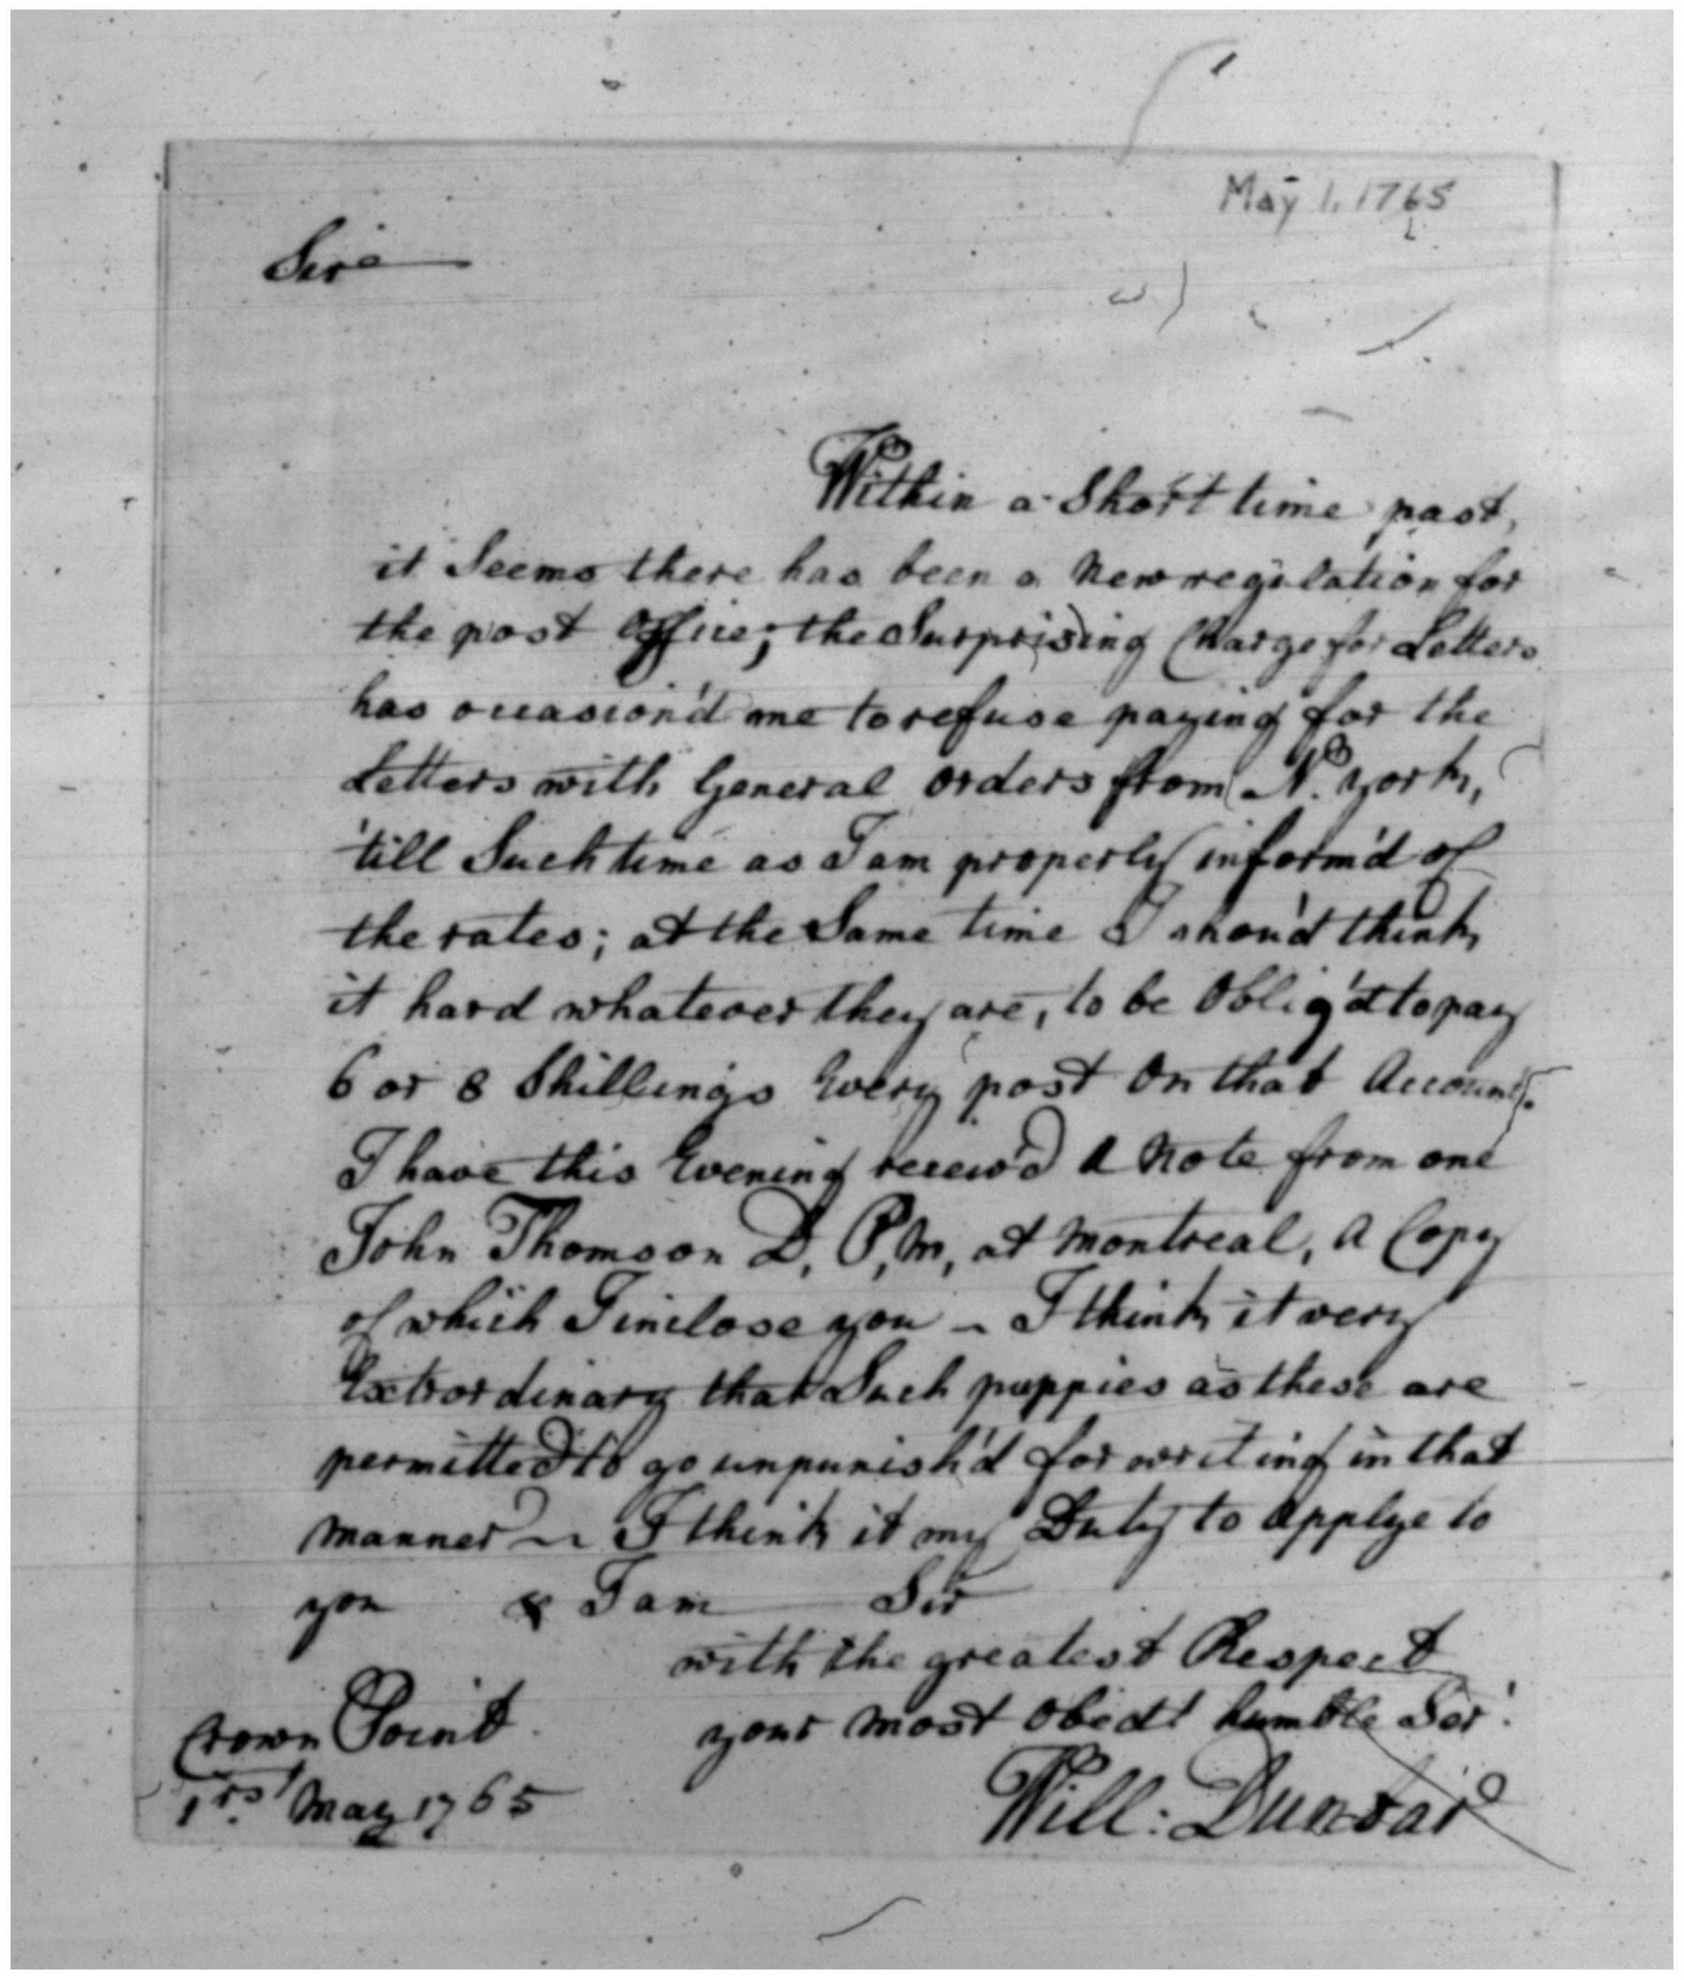 May 1, 1765
Sir
Within a Short time past,
it Seems there has been a New regulation for
the post Office; the Surprising Charge for Letters
has occasion'd me to refuse paying for the
Letters with General orders from N. York,
'till Such time as I am properly inform'd of
the rates; at the Same time I shou'd think
it hard whatever they are, to be Oblig'd to pay
6 or 8 Shillings Every post On that Account.
I have this Evening receiv'd A Note from one
John Thomson D, P, M, at Montreal, A Copy
of which I inclose you - I think it very
Extrordinary that Such puppies as these are
permitted to go unpunish'd for writing in that
manner - I think it my Duty to Applye to
you & I am Sir
with the greatest Respect
your most Obedt humble Ser'.
Will: Dunbar
Crown Point
1rst May 1765